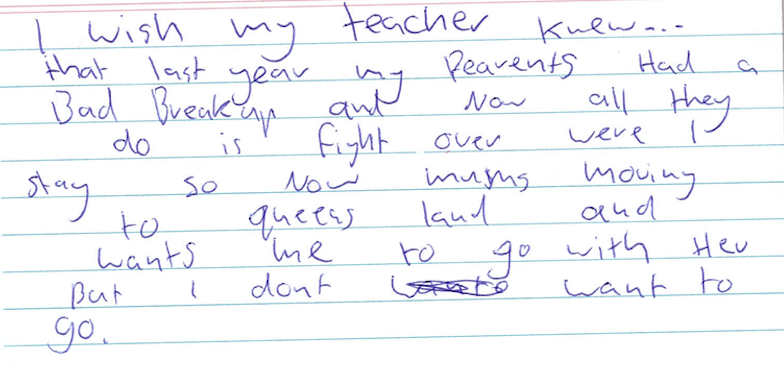 I wish my teacher knew...
that last year my Pearents Had a
Bad Breakup and Now all they
do is fight over were I
stay so Now mums moving
to queens land and
wants me to go with Her
But I dont want to
go.